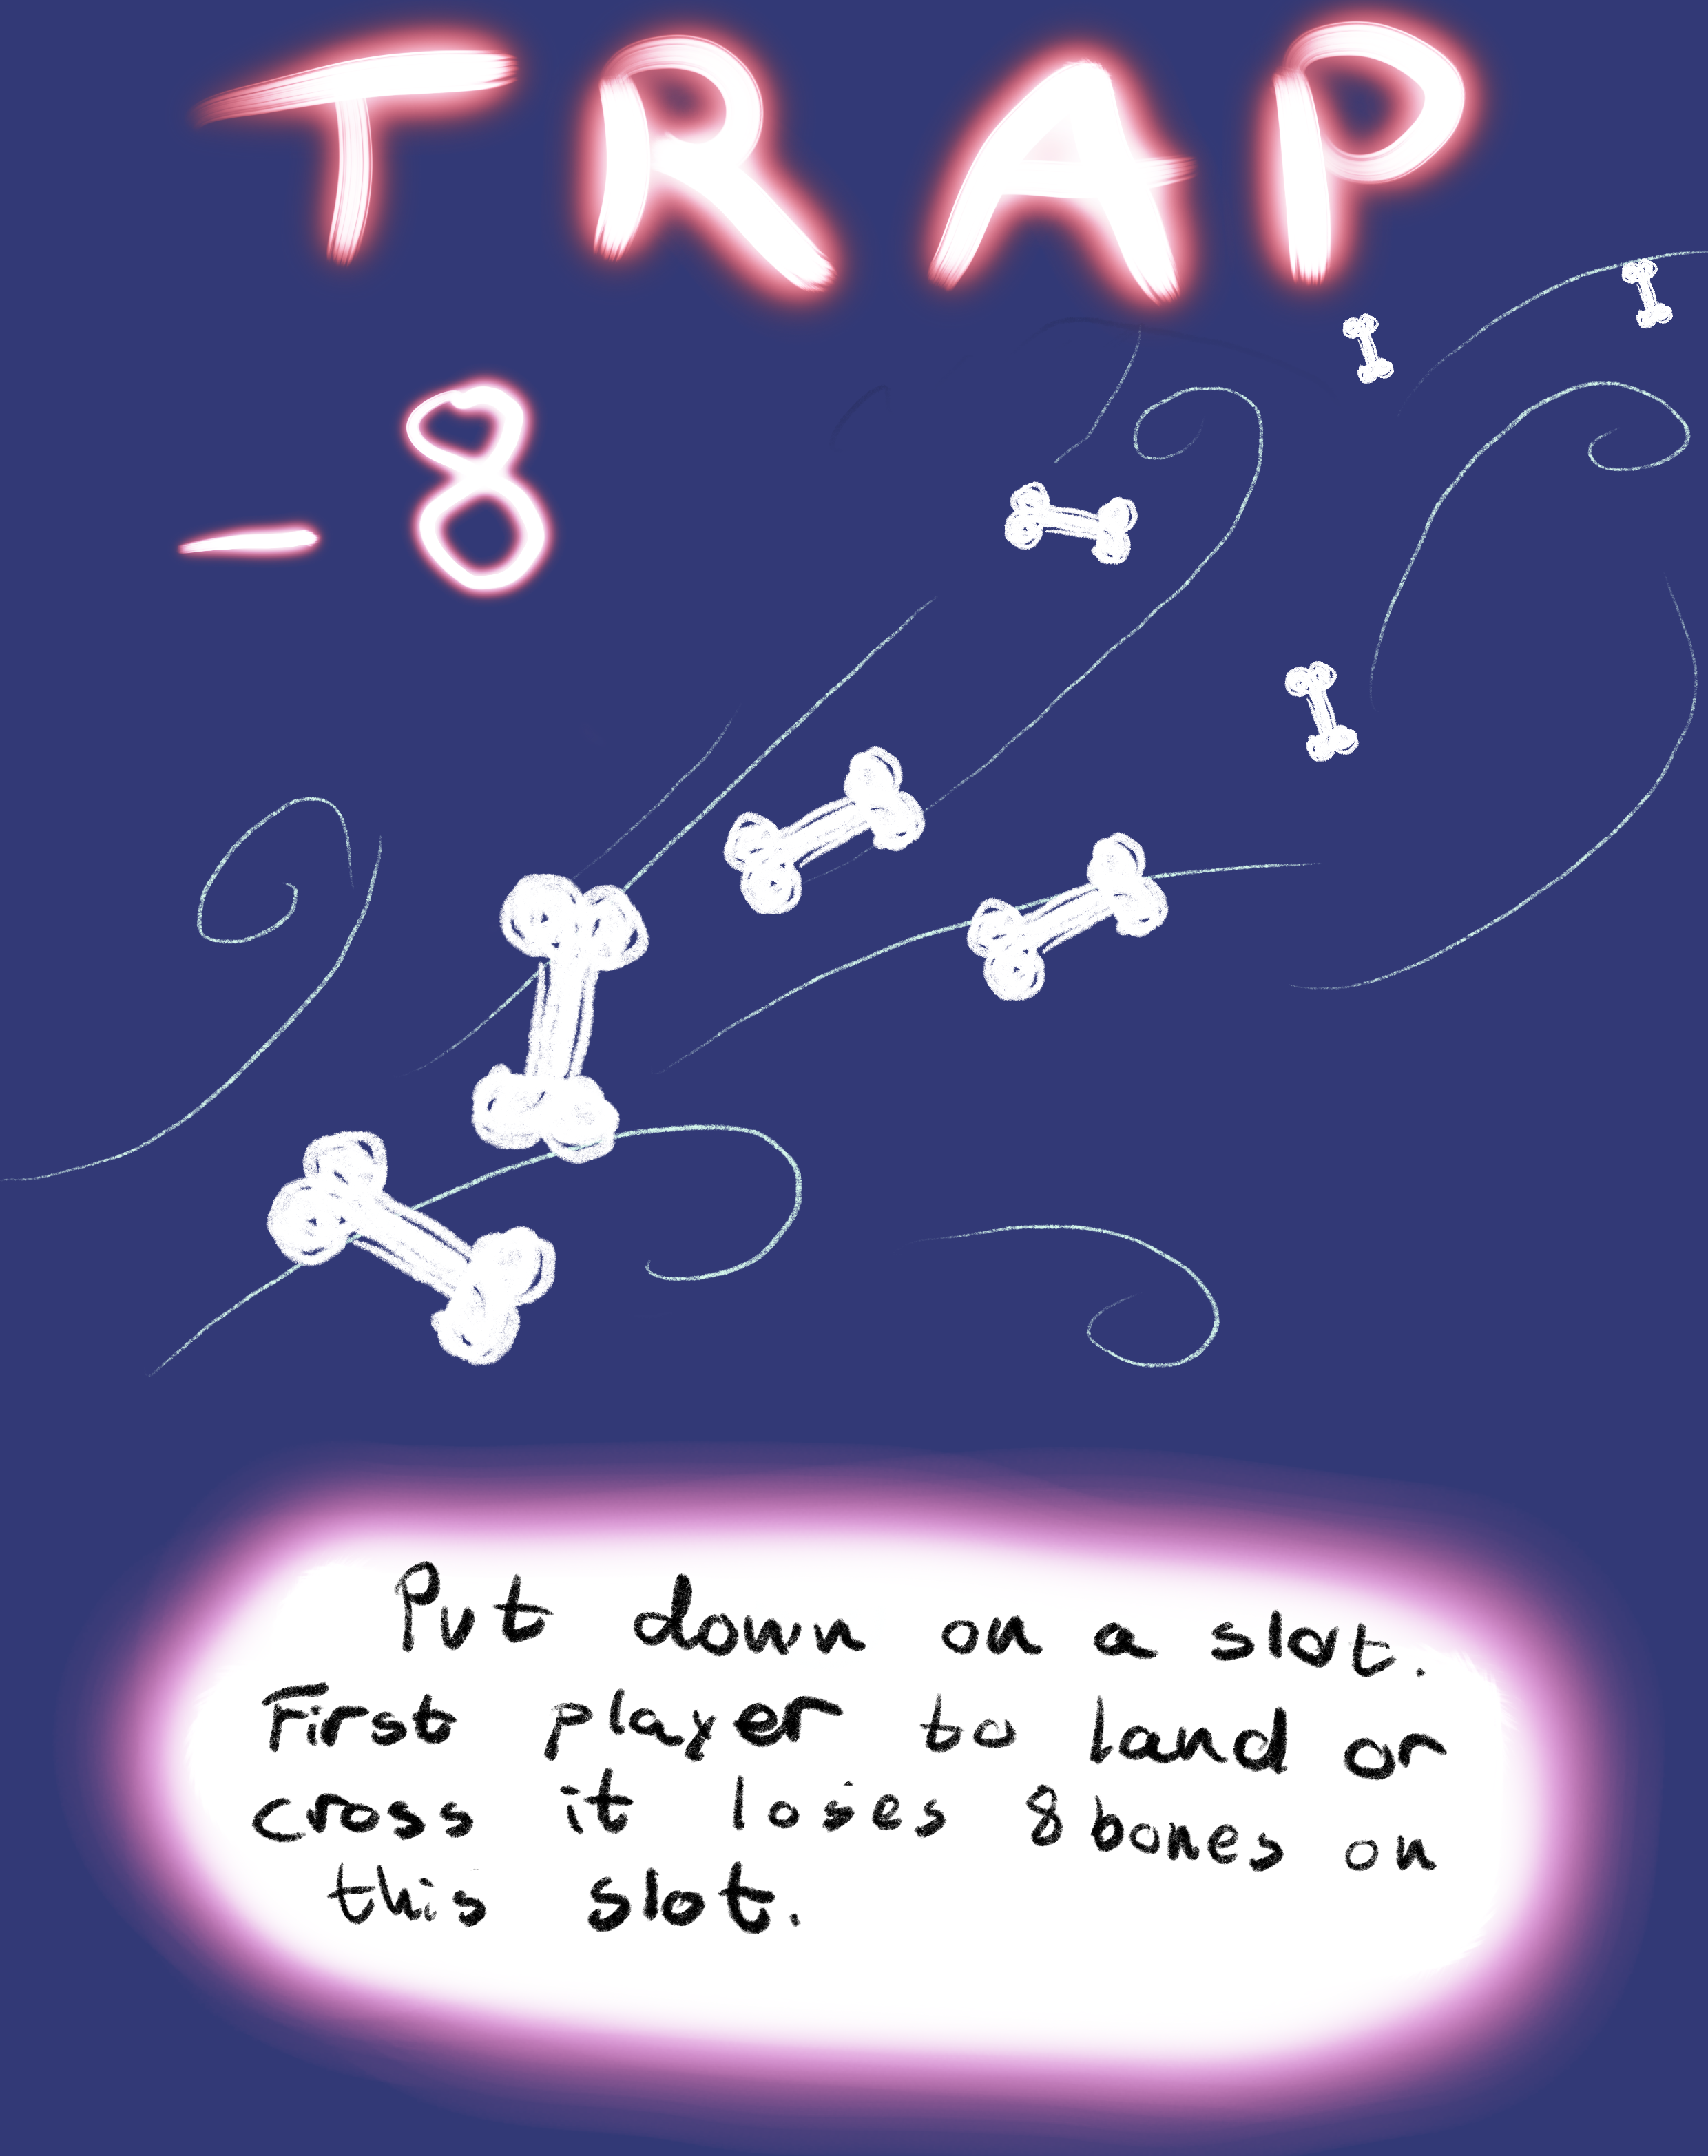 TRAP
-8
Put down on a slot.
First player to land or
cross it loses 8 bones on
this slot.